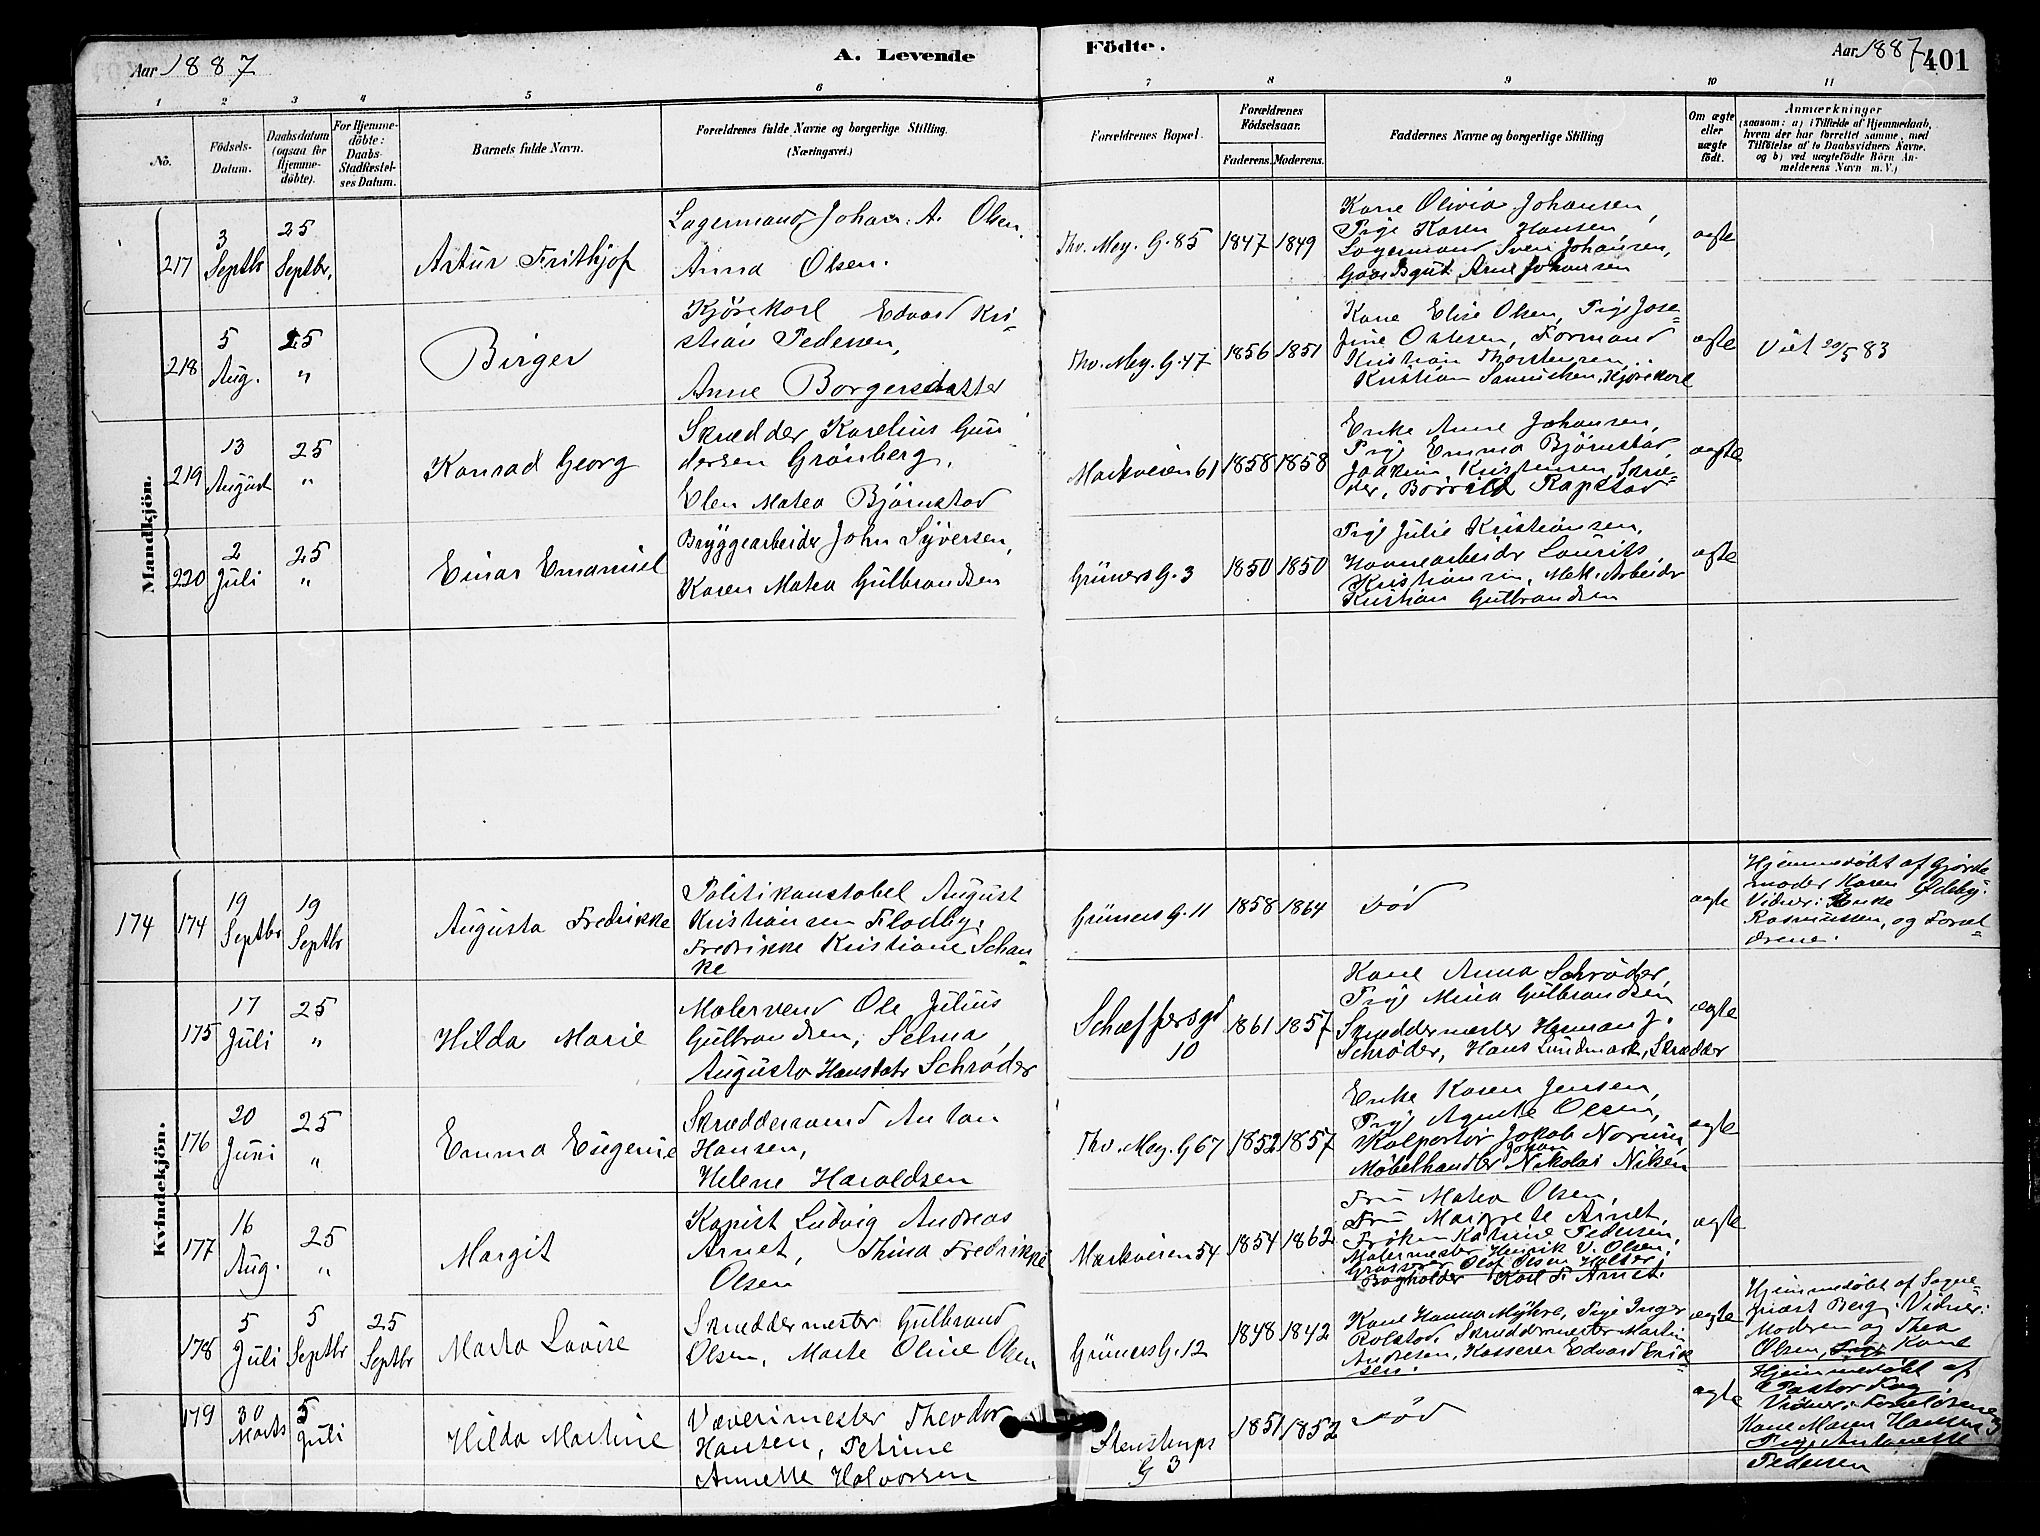 Aar 1887
A. Levende
Födte.
Aar 1887
401
1 2 3 4 5 6 7 8 9 10 11
No.
Födsels-
Datum.
Daabsdatum
(ogsaa for
Hjemme-
döbte).
For Hjemme-
döbte:
Daabs-
Stadfæstel-
ses Datum.
Barnets fulde Navn.
Forældrenes fulde Navne og borgerlige Stilling.
(Næringsvei.)
Forældrenes Bopæl.
Forældrenes
Födselsaar.
Faderens. Moderens.
Faddernes Navne og borgerlige Stilling
Om ægte
eller
uægte
födt.
Anmærkninger
(saasom: a) i Tilfælde af Hjemmedaab,
hvem der har forrettet samme, med
Tilföielse af to Daabsvidners Navne.
og b) ved uægtefödte Börn An-
melderens Navn m. V.)
Mandkjön.
217
3
Septbr
25
Septbr,
Artur Frithjof
Lagermand Johan A. Olsen,
Anna Olsen.
Thv. Mey. G. 85
1847 1849
Kone Olivia Johansen,
Pige Karen Hansen,
Lagermand Sven Johansen,
Gaardsgut Arne Johansen
ægte
218
5
Aug.
25
"
Birger
Kjørekarl Edvard Kri-
stian Pedersen,
Anne Borgersdatter
Thv. Mey. G. 47
1856 1851
Kone Elise Olsen, Pige Jose-
fine Olsen, Formand
Kristian Thorstensen,
Kristian Samuelsen, Kjørekarl
ægte
Viet 20/5 83
219
13
August
25
"
Konrad Georg
Skrædder Karelius Gun
dersen Grönberg,
Elen Matea Björnstad
Markveien 61
1858 1858
Enke Anne Johansen,
Pige Emma Björnstad,
Joakim Kristensen, Skræ-
der, Borvild Rapstad
ægte
220
2
Juli
25
"
Einar Emanuel
Bryggearbeider John Syversen,
Karen Matea Gulbrandsen
Grüners G. 3
1850 1850
Pige Julie Kristiansen,
Havnearbeider Laurits
Kristiansen, Mek. Arbeider
Kristian Gulbrandsen
ægte
Kvindekjön.
174 174
19
Septbr
19
Septbr
Augusta Fredrikke
Politikonstabel August
Kristiansen Flodby,
Fredrikke Kristiane Schan-
ke
Grüners G. 11
1858 1864
Död
ægte
Hjemmedöbt af Gjorde
moder Karen Ødeby.
Vidner: Enke
Rasmussen, og Foræl-
drene.
175
17
Juli
25
"
Hilda Marie
Malersvend Ole Julius
Gulbrandsen, Selma
Augusta Hansdatr Schrøder
Schæffersgd
10
1861 1857
Kone Anna Schrøder,
Pige Mina Gulbrandsen
Skræddermester Herman J.
Schrøder, Hans Lundmark, Skrædder
ægte
176
20
Juni
25
"
Emma Eugenie
Skræddersvend Anton
Hansen,
Helene Haraldsen
Thv. Mey. G 67
1852 1857
Enke Karen Jensen,
Pige Agnete Olsen,
Kolportör Jakob Norum,
Johan
Møbelhandler Nikolai Nilsen
ægte
177
16
Aug.
25
"
Margit
Kopist Ludvig Andreas
Arnet, Thina Fredrikke
Olsen
Markveien 54
1854 1862
Fru Matea Olsen,
Fru Margrete Arnet,
Frøken Katrine Pedersen,
Malermester Henrik V. Olsen,
Grosserer Olof Olsen Holter
Bogholder Karl F. Arnet.
ægte
178
5
Juli
5
Septbr
25
Septbr
Marta Lovise
Skræddermester Gulbrand
Olsen, Marte Oline Olsen
Grüners G. 12
1848 1842
Kone Hanna Myhre, Pige Inger
Rolstad, Skræddermester Martin
Andresen, Kasserer Edvard Erik-
sen.
ægte
Hjemmedöbt af Sogne-
præst Berg. Vidner:
Moderen og Thea
Olsen, Kone
179
30
Marts
5
Juli
Hilda Martine
Væverimester Theodor
Hansen, Petrine
Annette Halvorsen
Stenstrups
G 3
1851 1852
Död
ægte
Hjemmedöbt af
Pastor Kag
Vidner: Forældrene
Kone Maren Hansen
Pige Antonette
Pedersen